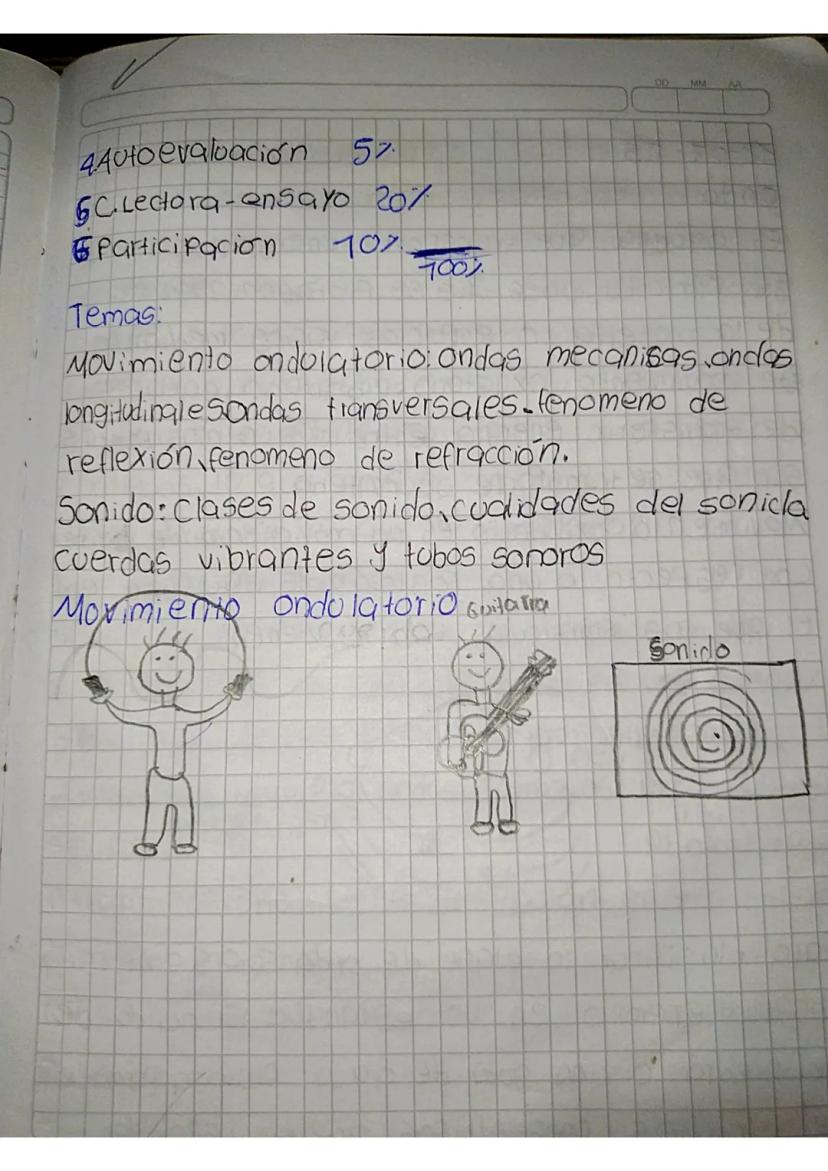 DD MM AA
4 Autoevaluación 5%
5 C. Lectora-ensayo 20%
6 Participacion 10%
100%
Temas:
Movimiento ondulatorio: ondas mecanicas, ondas
longitudinales ondas transversales. fenomeno de
reflexión, fenomeno de refracción.
Sonido: clases de sonido, cualidades del sonido
cuerdas vibrantes y tubos sonoros
Movimiento ondulatorio Guitarra
Sonido